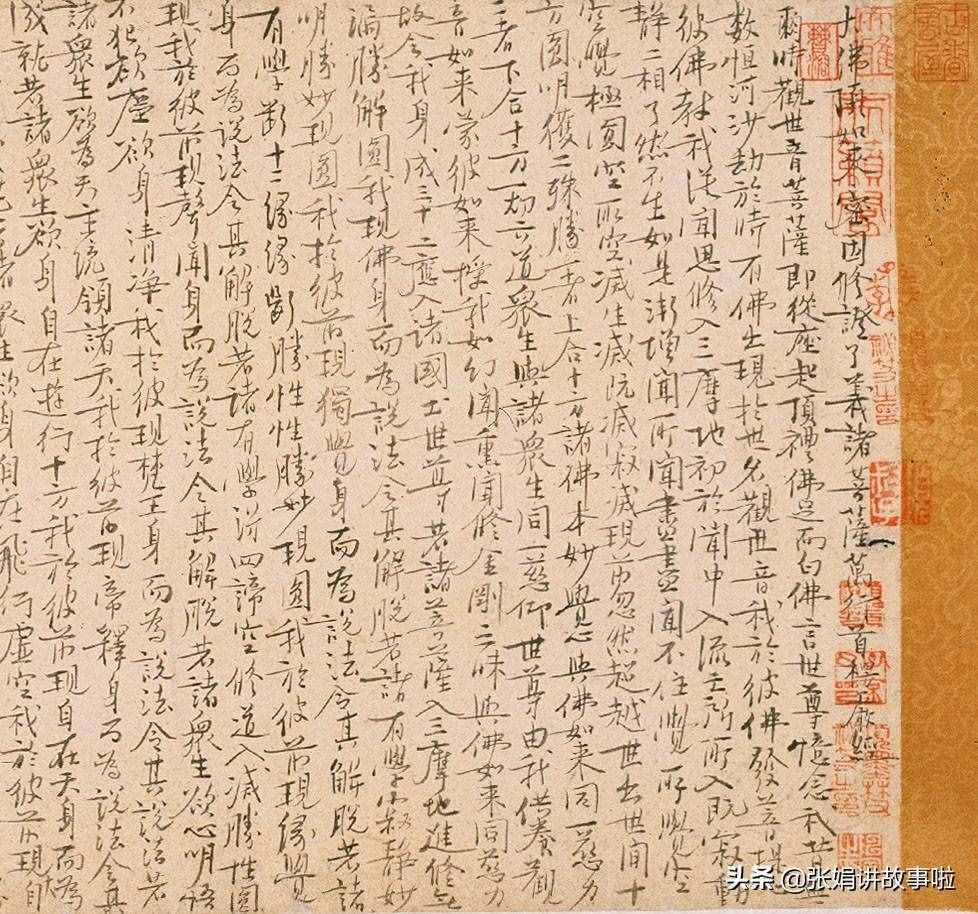 大佛頂如來密因修證了義諸菩薩萬行首楞嚴經
爾時觀世音菩薩即從座起頂禮佛足而白佛言世尊憶念我昔無
數恒河沙劫於時有佛出現於世名觀世音我於彼佛發菩提
彼佛教我從聞思修入三摩地初於聞中入流亡所所入既寂動
靜二相了然不生如是漸增聞所聞盡盡聞不住覺所覺空
空覺極圓空所空滅生滅既滅寂滅現前忽然超越世出世間十
方圓明獲二殊勝一者上合十方諸佛本妙覺心與佛如來同一慈力
二者下合十方一切六道眾生與諸眾生同一悲仰世尊由我供養觀
音如來蒙彼如來授我如幻聞熏聞修金剛三昧與佛如來同慈力
故令我身成三十二應入諸國土世尊若諸菩薩入三摩地進修無
漏勝解圓我現佛身而為說法令其解脫若諸有學寂靜妙
明勝妙現圓我於彼前現獨覺身而為說法令其解脫若諸
有學斷十二緣緣斷勝性性勝妙現圓我於彼前現緣覺
身而為說法令其解脫若諸有學得四諦空修道入滅勝性圓
現我於彼前現聲聞身而為說法令其解脫若諸眾生欲心明悟
不犯欲塵欲身清淨我於彼現梵王身而為說法令其說法若
諸眾生欲為天主統領諸天我於彼前現帝釋身而為說法令其
成就若諸眾生欲身自在遊行十方我於彼前現自在天身而為
眾生欲身自在飛行虛空我於彼前現自
头条 @张娟讲故事啦